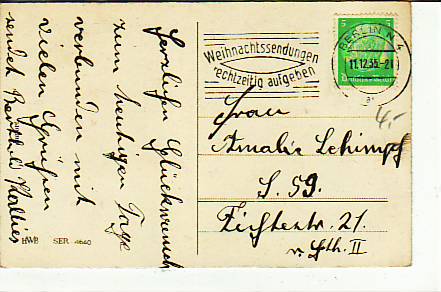 Herzlichen Glückwunsch
zum heutigen Tage
verbunden mit
vielen Grüßen
sendet
HWB SER. 4640
Weihnachtssendungen
rechtzeitig aufgeben
BERLIN N 4
11.12.35.-21
a
5 5
Deutsches Reich
4,-
Frau
Amalie Schimpf
S. 59.
Fichtestr. 21.
v. Gth. II